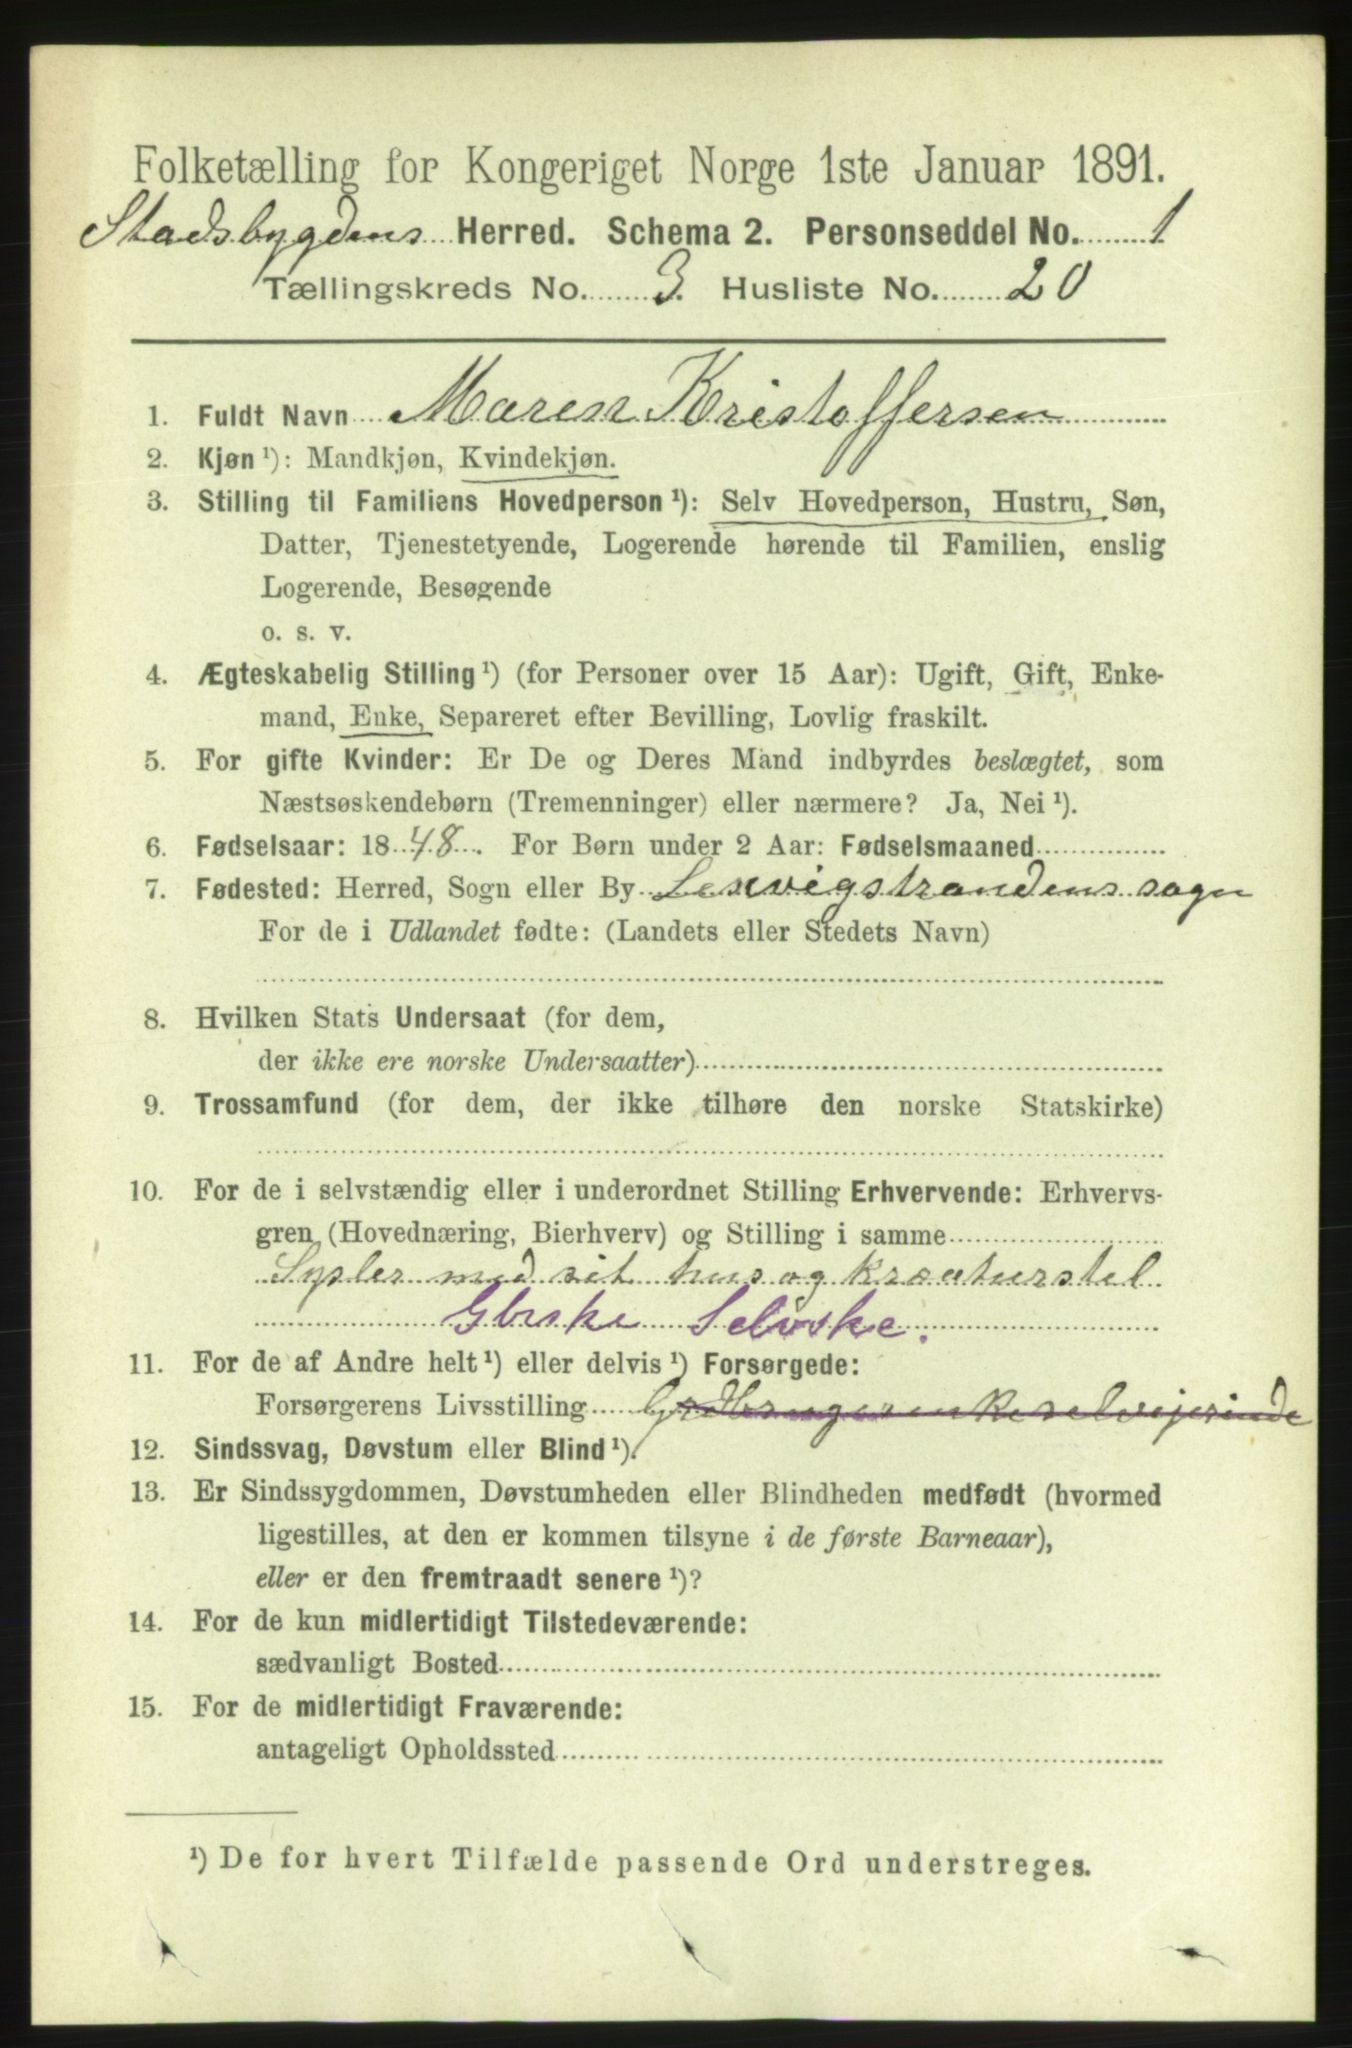 Folketælling for Kongeriget Norge 1ste Januar 1891.
Stadsbygdens Herred. Schema 2. Personseddel No. 1
Tællingskreds No. 3. Husliste No. 20
1. Fuldt Navn Maren Kristoffersen
2. Kjøn ¹): Mandkjøn, Kvindekjøn.
3. Stilling til Familiens Hovedperson ¹): Selv Hovedperson, Hustru, Søn,
Datter, Tjenestetyende, Logerende hørende til Familien, enslig
Logerende, Besøgende
o. s. v.
4. Ægteskabelig Stilling ¹) (for Personer over 15 Aar): Ugift, Gift, Enke-
mand, Enke, Separeret efter Bevilling, Lovlig fraskilt.
5. For gifte Kvinder: Er De og Deres Mand indbyrdes beslægtet, som
Næstsøskendebørn (Tremenninger) eller nærmere? Ja, Nei ¹).
6. Fødselsaar: 1848. For Børn under 2 Aar: Fødselsmaaned
7. Fødested: Herred, Sogn eller By Lexvigstrandens sogn
For de i Udlandet fødte: (Landets eller Stedets Navn)
8. Hvilken Stats Undersaat (for dem,
der ikke ere norske Undersaatter)
9. Trossamfund (for dem, der ikke tilhøre den norske Statskirke)
10. For de i selvstændig eller i underordnet Stilling Erhvervende: Erhvervs-
gren (Hovednæring, Bierhverv) og Stilling i samme
Sysler med sit hus og kræaturstel
Gbrske Selvske.
11. For de af Andre helt ¹) eller delvis ¹) Forsørgede:
Forsørgerens Livsstilling Grdbrugerenke selveierinde
12. Sindssvag, Døvstum eller Blind ¹).
13. Er Sindssygdommen, Døvstumheden eller Blindheden medfødt (hvormed
ligestilles, at den er kommen tilsyne i de første Barneaar),
eller er den fremtraadt senere ¹)?
14. For de kun midlertidigt Tilstedeværende:
sædvanligt Bosted
15. For de midlertidigt Fraværende:
antageligt Opholdssted
¹) De for hvert Tilfælde passende Ord understreges.